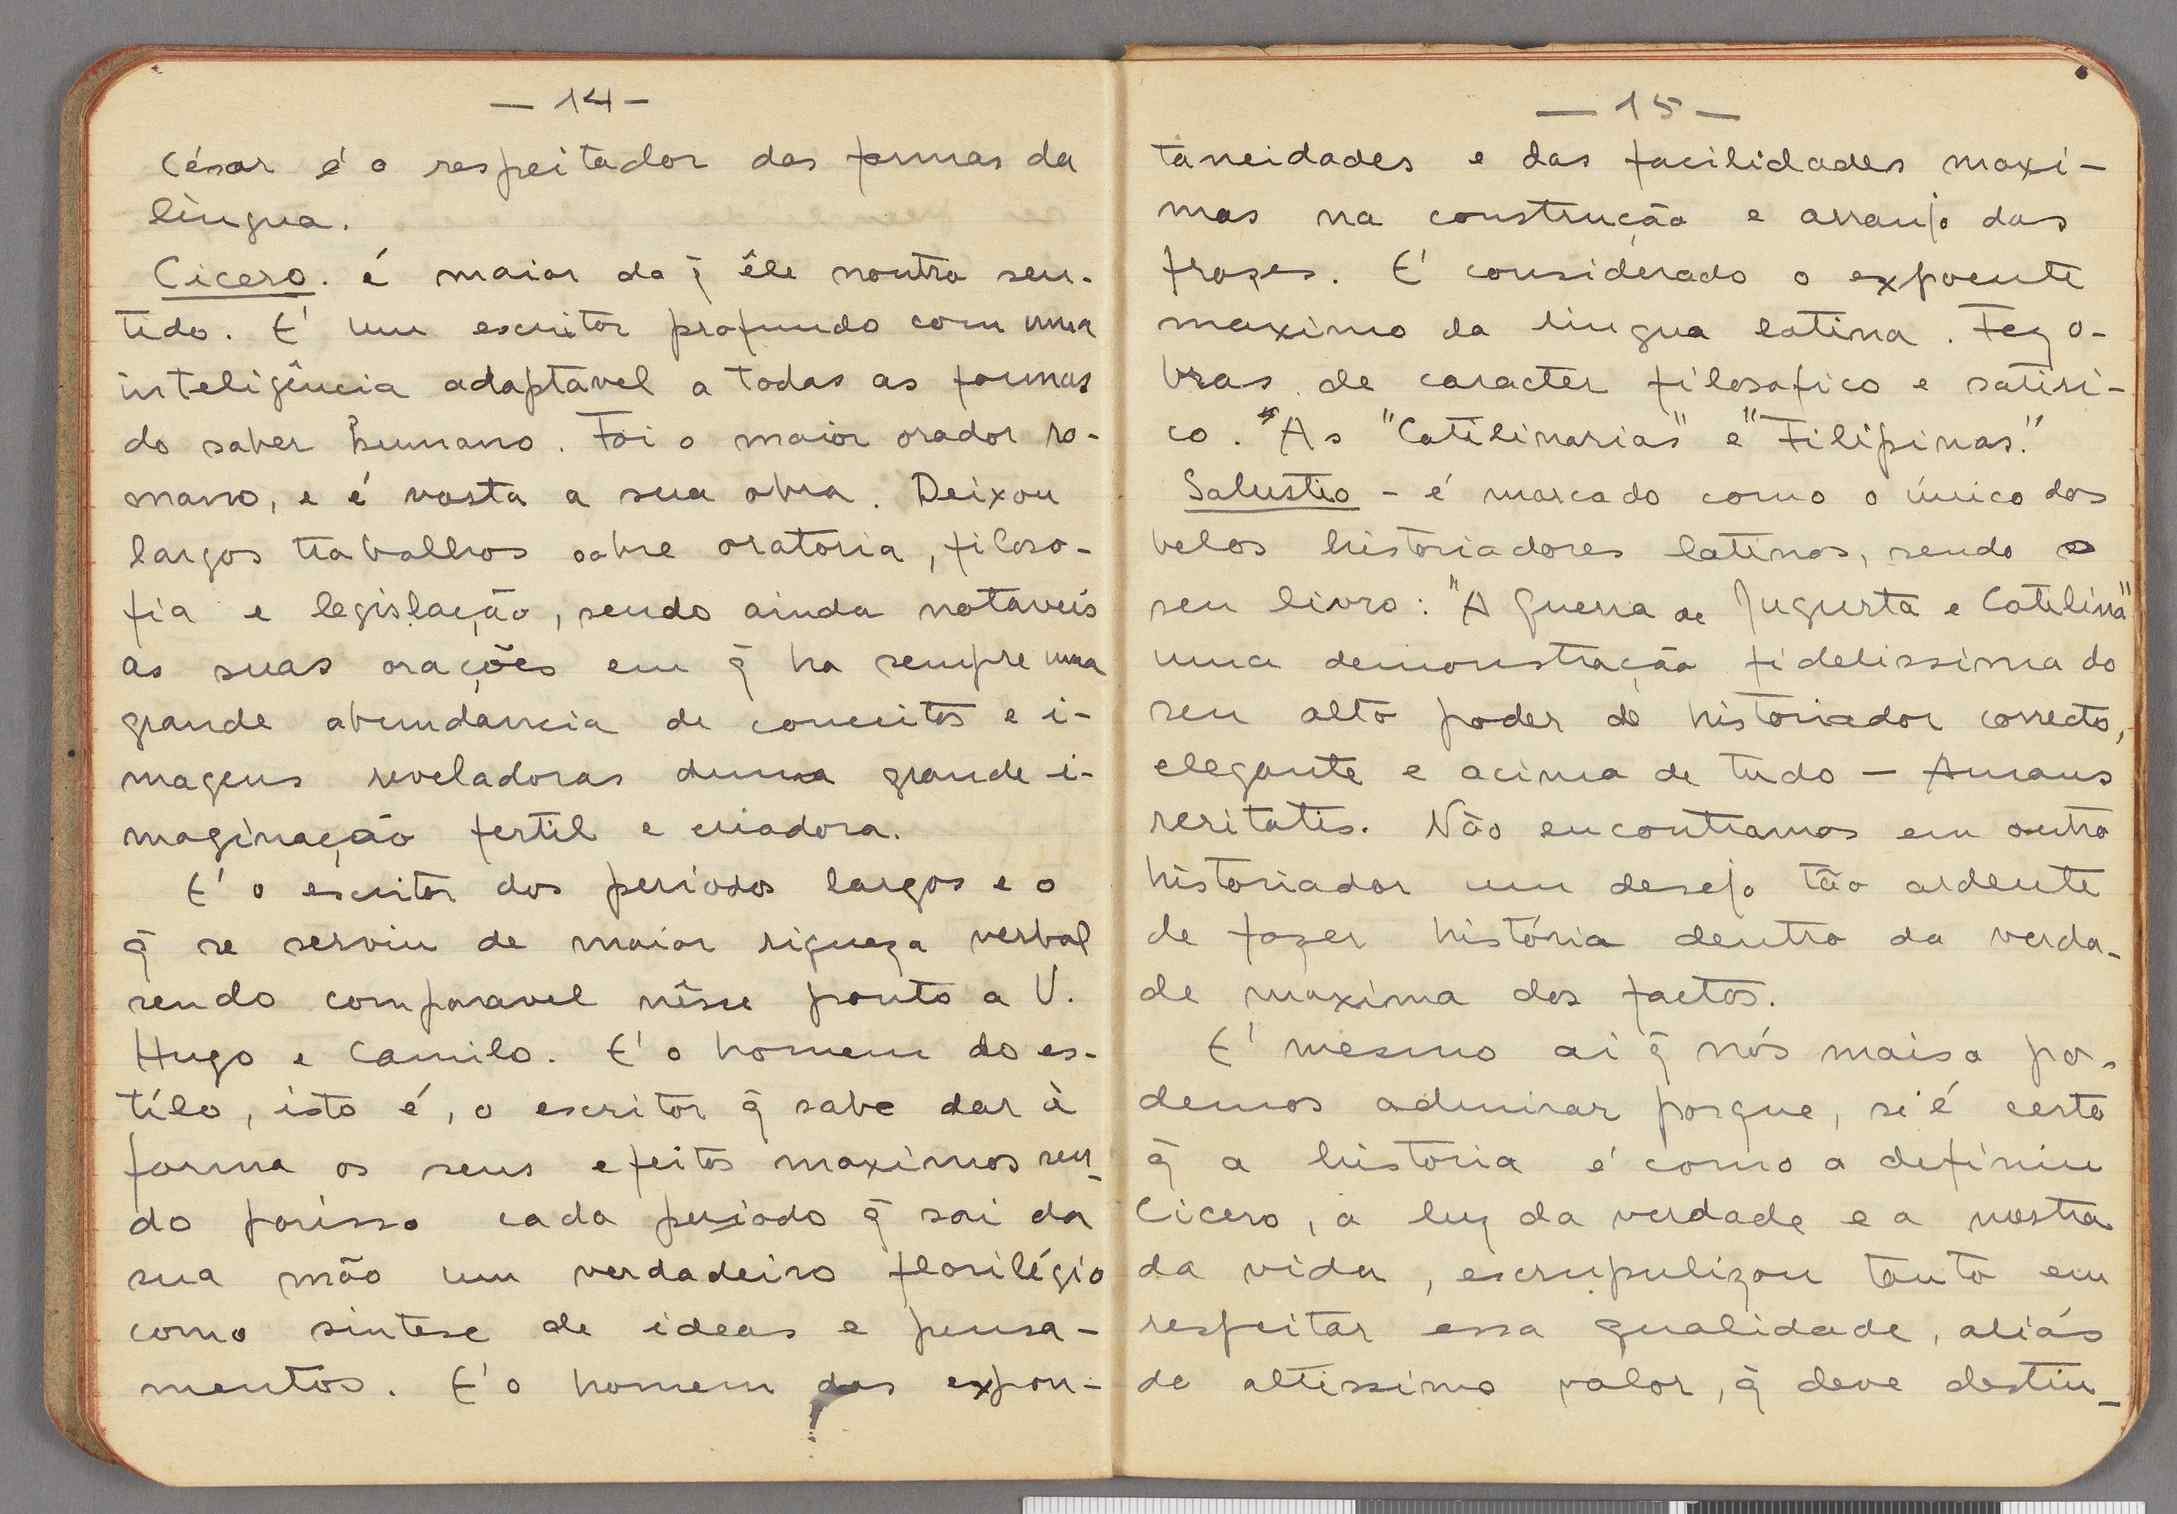 — 14 —
César é o respeitador das formas da
lingua.
Cicero. é maior do q̃ êle noutro sen-
tido. E' um escritor profundo com uma
inteligência adaptavel a todas as formas
do saber humano. Foi o maior orador ro-
mano, e é vasta a sua obra. Deixou
largos trabalhos sobre oratoria, filoso-
fia e legislação, sendo ainda notaveis
as suas orações em q̃ ha sempre uma
grande abundancia de conceitos e i-
magens reveladoras duma grande i-
maginação fertil e criadora.
E' o escritor dos periodos largos e o
q̃ se serviu de maior riqueza verbal
sendo comparavel nêsse ponto a V.
Hugo e Camilo. E' o homem do es-
tílo, isto é, o escritor q̃ sabe dar à
forma os seus efeitos maximos sen-
do porisso cada periodo q̃ sai da
sua mão um verdadeiro florilégio
como sintese de ideas e pensa-
mentos. E' o homem das expon-
— 15 —
taneidades e das facilidades maxi-
mas na construção e arranjo das
frazes. E' considerado o expoente
maximo da lingua latina. Fez o-
bras de caracter filosofico e satiri-
co. "As "Catilinarias" e "Filipinas."
Salustio - é marcado como o único dos
belos historiadores latinos, sendo o
seu livro: "A Guerra de Jugurta e Catilina"
uma demonstração fidelissima do
seu alto poder de historiador correcto,
elegante e acima de tudo — Amans
veritatis. Não encontramos em outro
historiador um desejo tão ardente
de fazer história dentro da verda-
de maxima dos factos.
E' mesmo ai q̃ nós maiso po-
demos admirar porque, si é certo
q̃ a historia é como a definiu
Cicero, a luz da verdade e a mestra
da vida, escrupulizou tanto em
respeitar essa qualidade, aliás
de altissimo valor, q̃ deve destin-